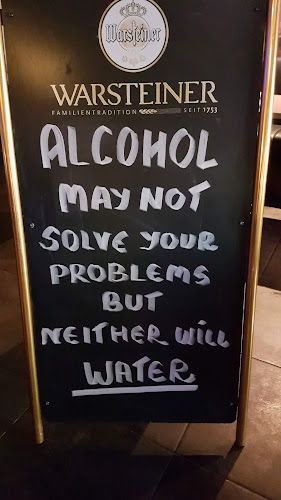 Warsteiner
WARSTEINER
FAMILIENTRADITION SEIT 1753
ALCOHOL
MAY NOT
SOLVE YOUR
PROBLEMS
BUT
NEITHER WILL
WATER